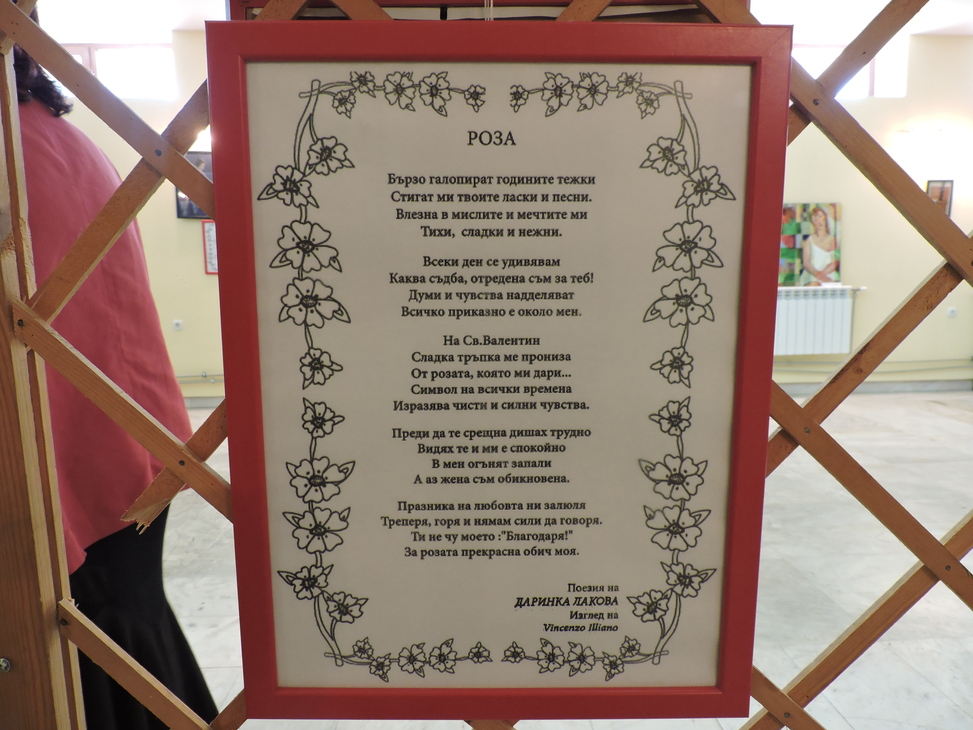 РОЗА
Бързо галопират годините тежки
Стигат ми твоите ласки и песни.
Влезна в мислите и мечтите ми
Тихи, сладки и нежни.
Всеки ден се удивявам
Каква съдба, отредена съм за теб!
Думи и чувства надделяват
Всичко приказно е около мен.
На Св.Валентин
Сладка тръпка ме прониза
От розата, която ми дари...
Символ на всички времена
Изразява чисти и силни чувства.
Преди да те срещна дишах трудно
Видях те и ми е спокойно
В мен огънят запали
А аз жена съм обикновена.
Празника на любовта ни залюля
Треперя, горя и нямам сили да говоря.
Ти не чу моето :"Благодаря!"
За розата прекрасна обич моя.
Поезия на
ДАРИНКА ЛАКОВА
Изглед на
Vincenzo Illiano